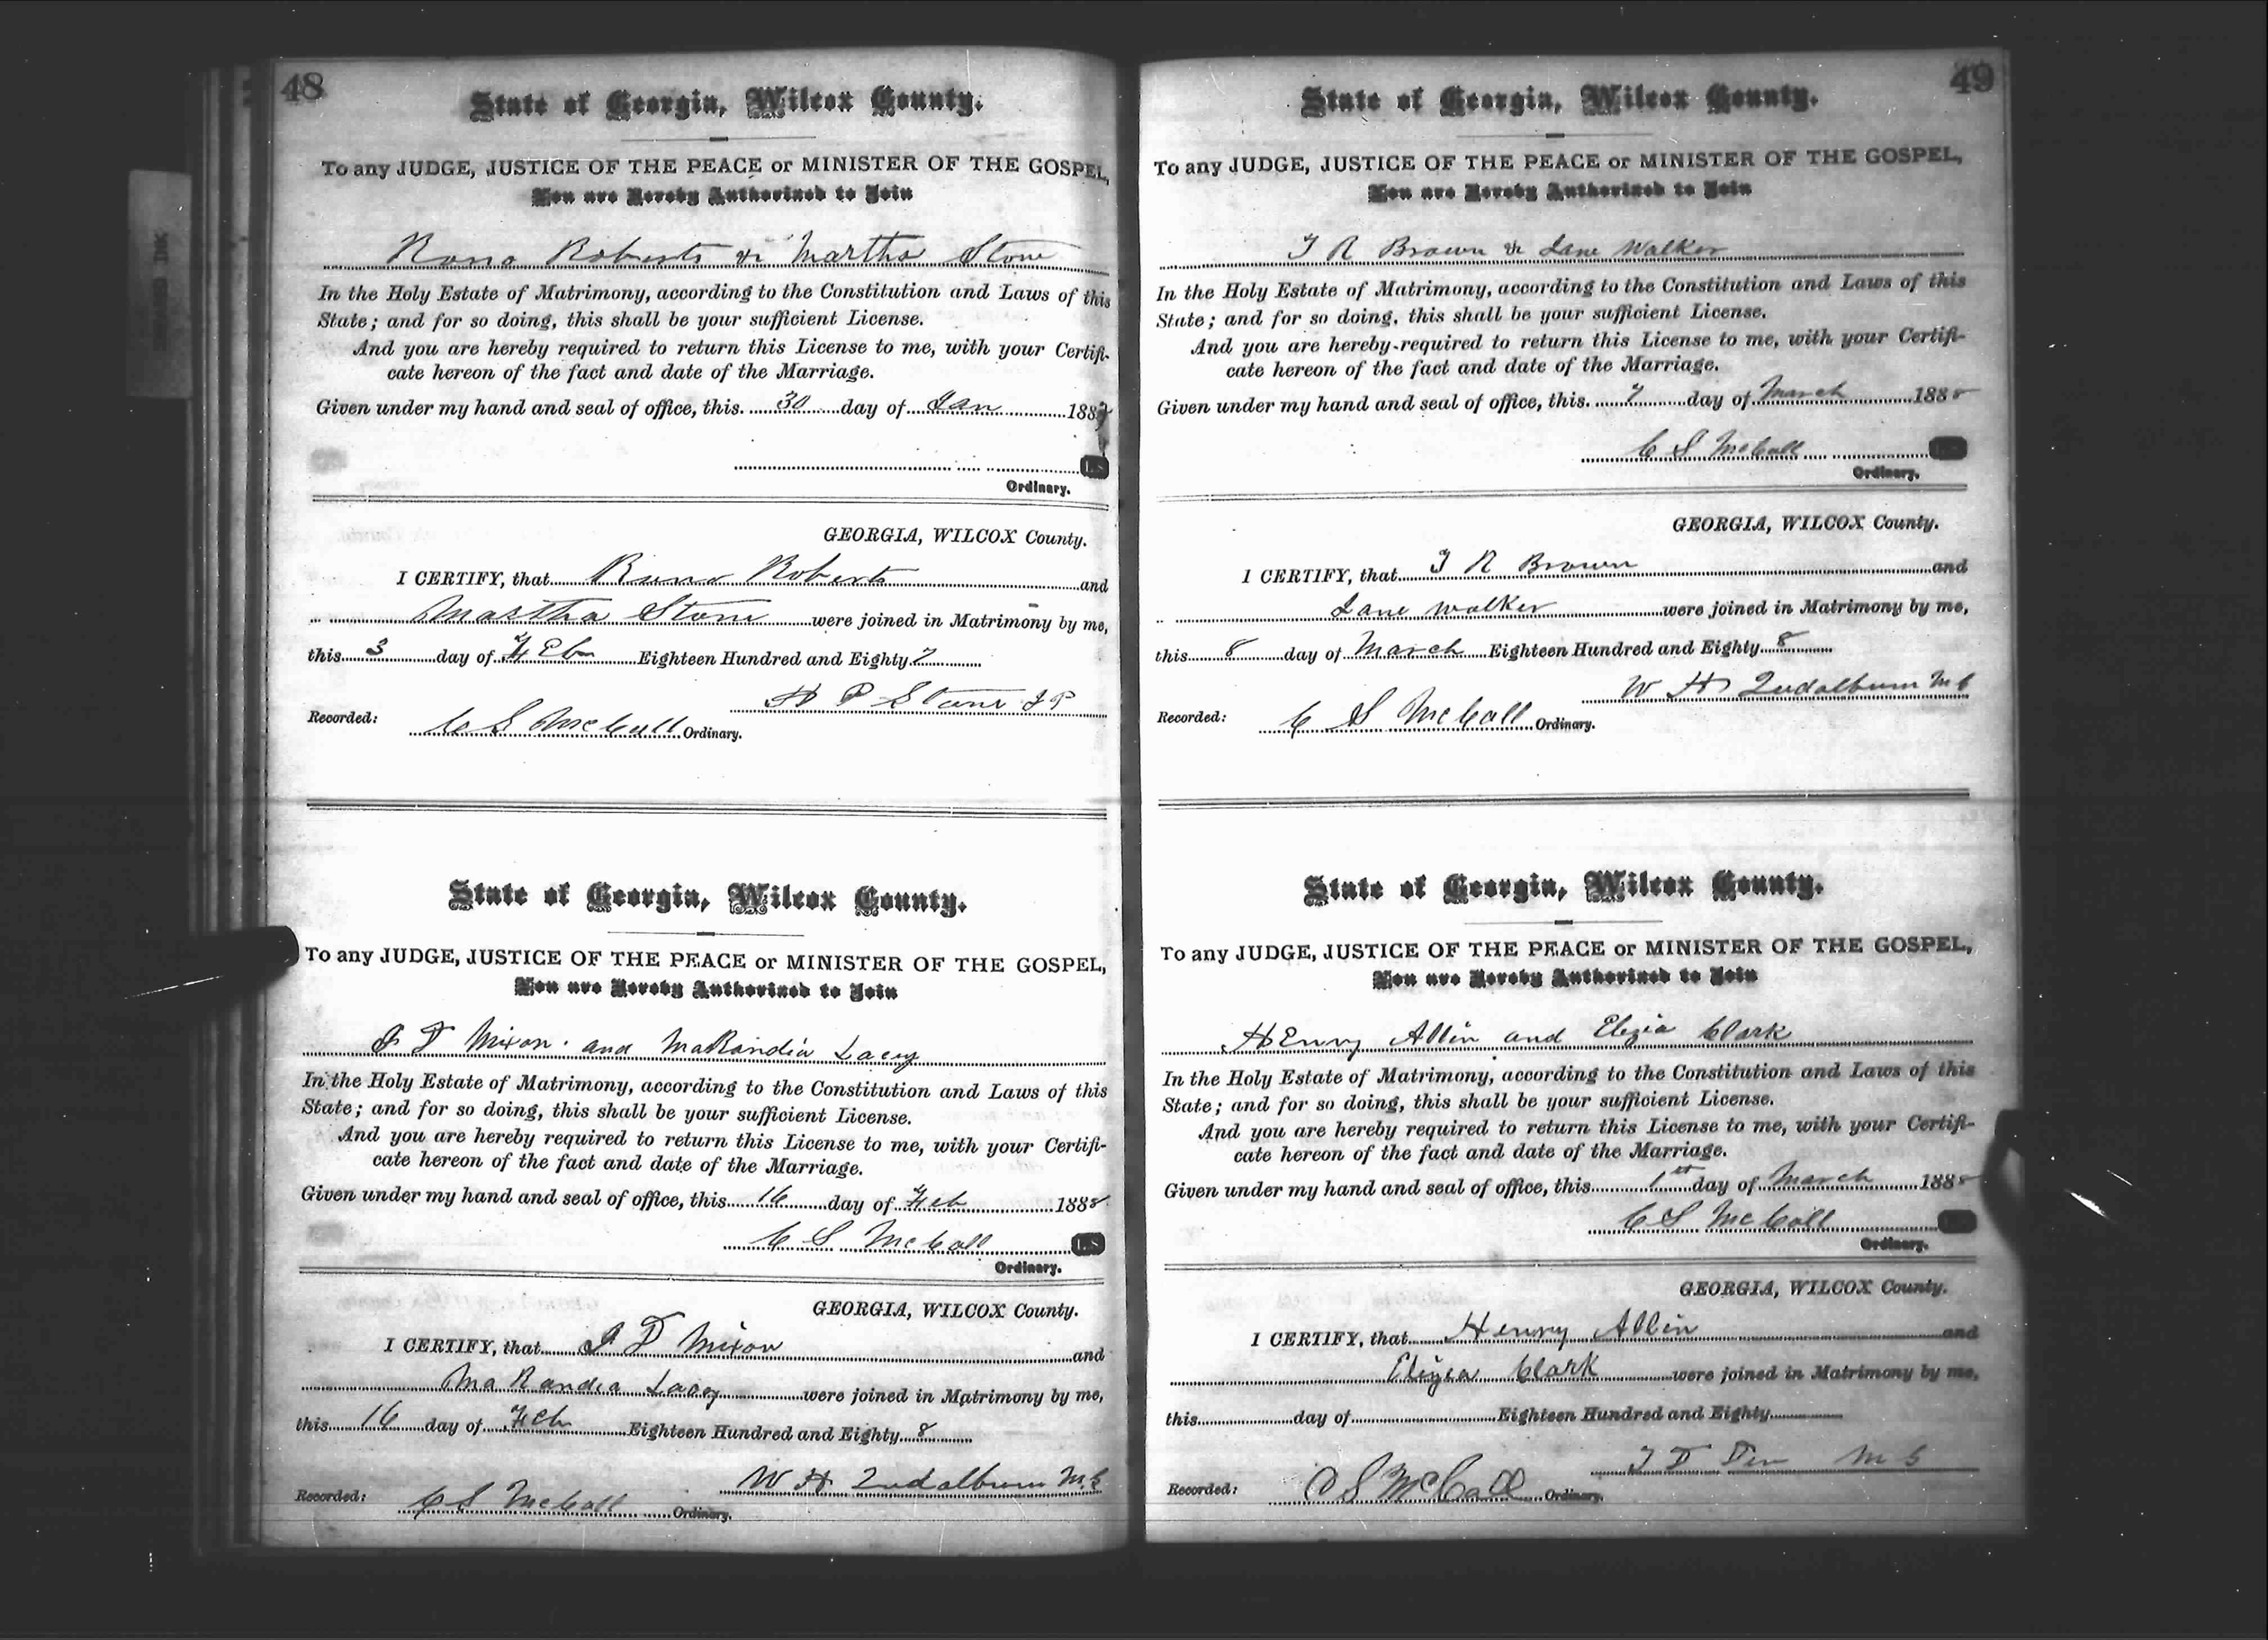 48
State of Georgia, Wilcox County.
To any JUDGE, JUSTICE OF THE PEACE or MINISTER OF THE GOSPEL,
You are Hereby Authorized to Join
Roberts & Martha Stone
In the Holy Estate of Matrimony, according to the Constitution and Laws of this
State; and for so doing, this shall be your sufficient License.
And you are hereby required to return this License to me, with your Certifi-
cate hereon of the fact and date of the Marriage.
Given under my hand and seal of office, this 30 day of Jan 1887
L.S.
Ordinary.
GEORGIA, WILCOX County.
I CERTIFY, that Roberts and
Martha Stone were joined in Matrimony by me,
this 3 day of Feb Eighteen Hundred and Eighty 7
H P Stone J P
Recorded: C S McCall Ordinary.
State of Georgia, Wilcox County.
To any JUDGE, JUSTICE OF THE PEACE or MINISTER OF THE GOSPEL,
You are Hereby Authorized to Join
D Mixon and MaRandia Lacey
In the Holy Estate of Matrimony, according to the Constitution and Laws of this
State; and for so doing, this shall be your sufficient License.
And you are hereby required to return this License to me, with your Certifi-
cate hereon of the fact and date of the Marriage.
Given under my hand and seal of office, this 16 day of Feb 1888
C S McCall L.S.
Ordinary.
GEORGIA, WILCOX County.
I CERTIFY, that D Mixon and
Ma Randia Lacey were joined in Matrimony by me,
this 16 day of Feb Eighteen Hundred and Eighty 8
W H M.G
Recorded: C S McCall Ordinary.
49
State of Georgia, Wilcox County.
To any JUDGE, JUSTICE OF THE PEACE or MINISTER OF THE GOSPEL,
You are Hereby Authorized to Join
R Brown & Jane Walker
In the Holy Estate of Matrimony, according to the Constitution and Laws of this
State; and for so doing, this shall be your sufficient License.
And you are hereby required to return this License to me, with your Certifi-
cate hereon of the fact and date of the Marriage.
Given under my hand and seal of office, this 7 day of March 1888
C S McCall
Ordinary.
GEORGIA, WILCOX County.
I CERTIFY, that R Brown and
Jane Walker were joined in Matrimony by me,
this 8 day of March Eighteen Hundred and Eighty 8
W H M G
Recorded: C S McCall Ordinary.
State of Georgia, Wilcox County.
To any JUDGE, JUSTICE OF THE PEACE or MINISTER OF THE GOSPEL,
You are Hereby Authorized to Join
Henry Allin and Clark
In the Holy Estate of Matrimony, according to the Constitution and Laws of this
State; and for so doing, this shall be your sufficient License.
And you are hereby required to return this License to me, with your Certifi-
cate hereon of the fact and date of the Marriage.
Given under my hand and seal of office, this 1st day of March 1888
C S McCall
Ordinary.
GEORGIA, WILCOX County.
I CERTIFY, that Henry Allin and
Clark were joined in Matrimony by me,
this day of Eighteen Hundred and Eighty
M G
Recorded: C S McCall Ordinary.